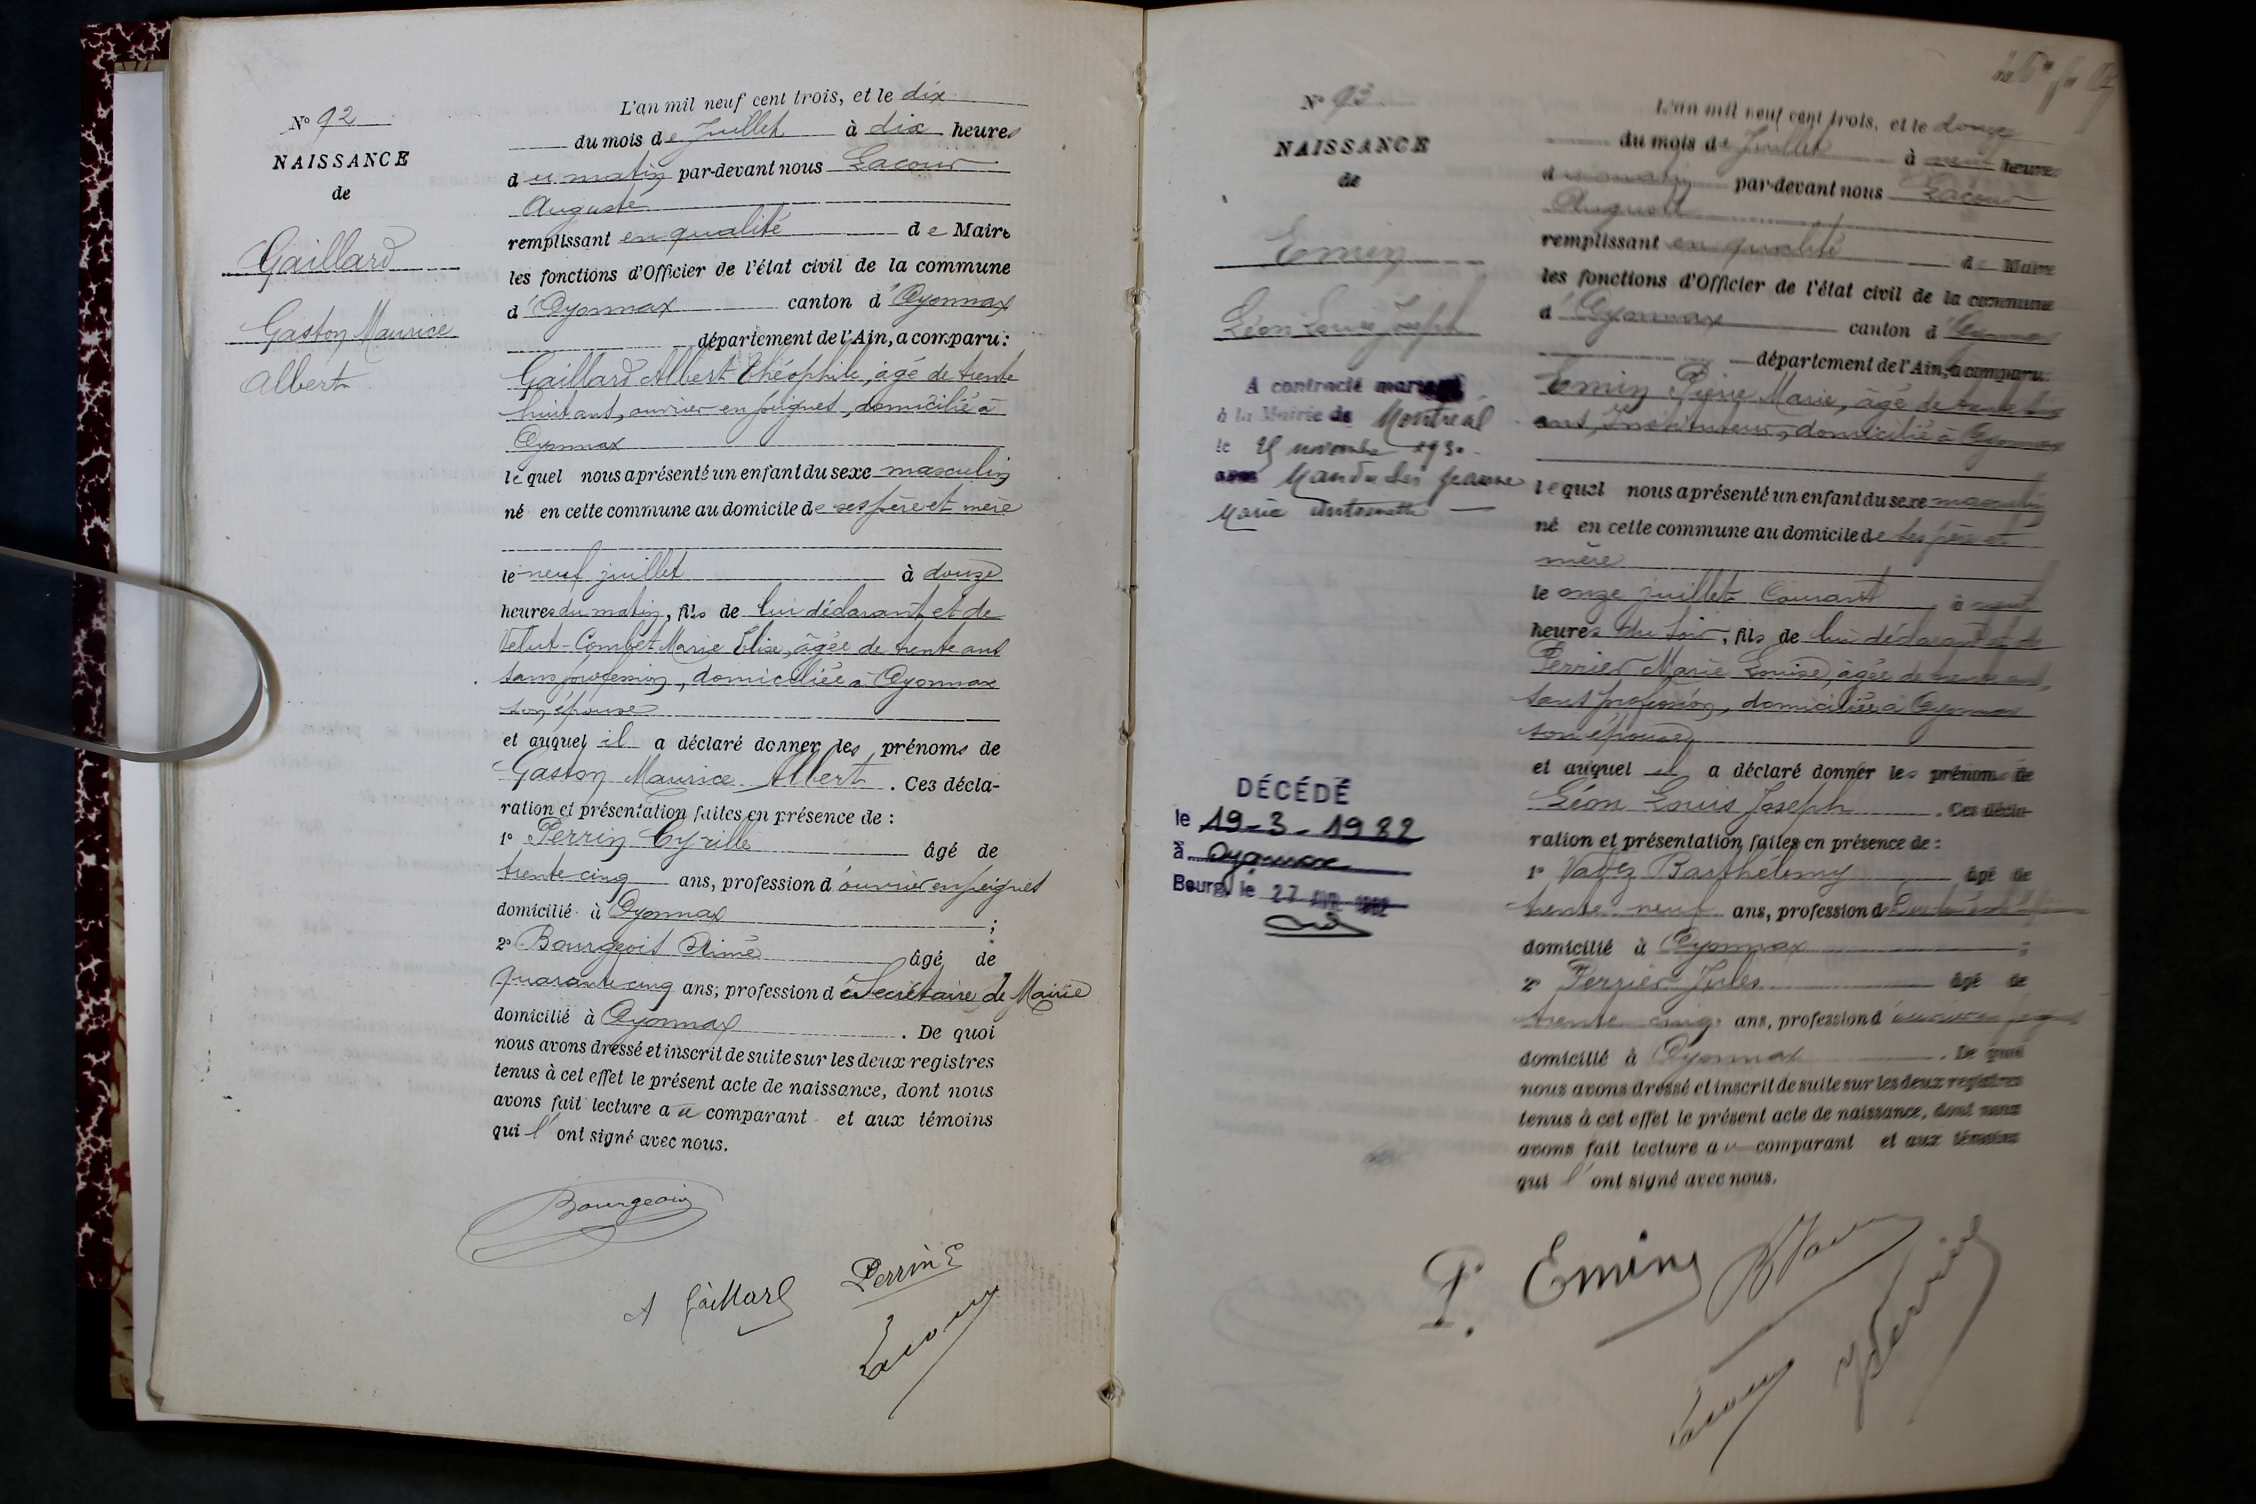 N° 92
NAISSANCE
de
Gaillard
Gaston Maurice
Albert
L'an mil neuf cent trois, et le dix
du mois de Juillet à dix heures
du matin par-devant nous Lacour
Auguste
remplissant en qualité de Maire
les fonctions d'Officier de l'état civil de la commune
d'Oyonnax canton d'Oyonnax
département de l'Ain, a comparu:
Gaillard Albert Théophile, âgé de trente
huit ans, ouvrier en peignes, domicilié à
Oyonnax
lequel nous a présenté un enfant du sexe masculin
né en cette commune au domicile de ses père et mère
le neuf juillet à douze
heures du matin, fils de lui déclarant et de
Velut-Combet Marie Elise, âgée de trente ans
sans profession, domiciliée à Oyonnax
son épouse
et auquel il a déclaré donner les prénoms de
Gaston Maurice Albert. Ces décla-
ration et présentation faites en présence de :
1° Perrin Cyrille âgé de
trente cinq ans, profession d'ouvrier en peignes
domicilié à Oyonnax ;
2° Bourgeois Aimé âgé de
quarante cinq ans, profession de Secrétaire de Mairie
domicilié à Oyonnax. De quoi
nous avons dressé et inscrit de suite sur les deux registres
tenus à cet effet le présent acte de naissance, dont nous
avons fait lecture au comparant et aux témoins
qui l'ont signé avec nous.
Bourgeois
A Gaillard Perrin C
Lacour
N° 93
NAISSANCE
de
Emin
Léon Louis Joseph
A contracté mariage
à la Mairie de Montréal
le 25 novembre 1930
avec Jeanne
Marie Antoinette
DÉCÉDÉ
le 19-3-1982
à Oyonnax
Bourg, le 27 1982
L'an mil neuf cent trois, et le douze
du mois de Juillet à neuf heures
du matin par-devant nous Lacour
Auguste
remplissant en qualité de Maire
les fonctions d'Officier de l'état civil de la commune
d'Oyonnax canton d'Oyonnax
département de l'Ain, a comparu:
Emin Pierre Marie, âgé de trente
ans, Instituteur, domicilié à Oyonnax
lequel nous a présenté un enfant du sexe masculin
né en cette commune au domicile de ses père et
mère
le onze juillet Courant à neuf
heures du soir, fils de lui déclarant et de
Perrier Marie Louise, âgée de trente ans,
sans profession, domiciliée à Oyonnax
son épouse
et auquel il a déclaré donner les prénoms de
Léon Louis Joseph. Ces décla-
ration et présentation faites en présence de :
1° Barthélemy âgé de
trente neuf ans, profession de
domicilié à Oyonnax ;
2° Perrier Jules âgé de
trente cinq ans, profession d'ouvrier en peignes
domicilié à Oyonnax. De quoi
nous avons dressé et inscrit de suite sur les deux registres
tenus à cet effet le présent acte de naissance, dont nous
avons fait lecture au comparant et aux témoins
qui l'ont signé avec nous.
P. Emin
Lacour J Perrier